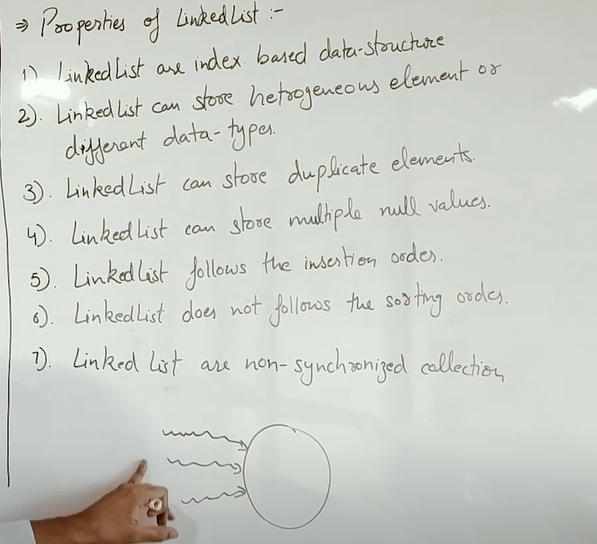 ⇒ Properties of LinkedList :-
1) LinkedList are index based data-structure
2). LinkedList can store hetrogeneous element or
different data-types.
3). LinkedList can store duplicate elements.
4). LinkedList can store multiple null values.
5). LinkedList follows the insertion order.
6). LinkedList does not follows the sorting order.
7). Linked List are non-synchronized collection